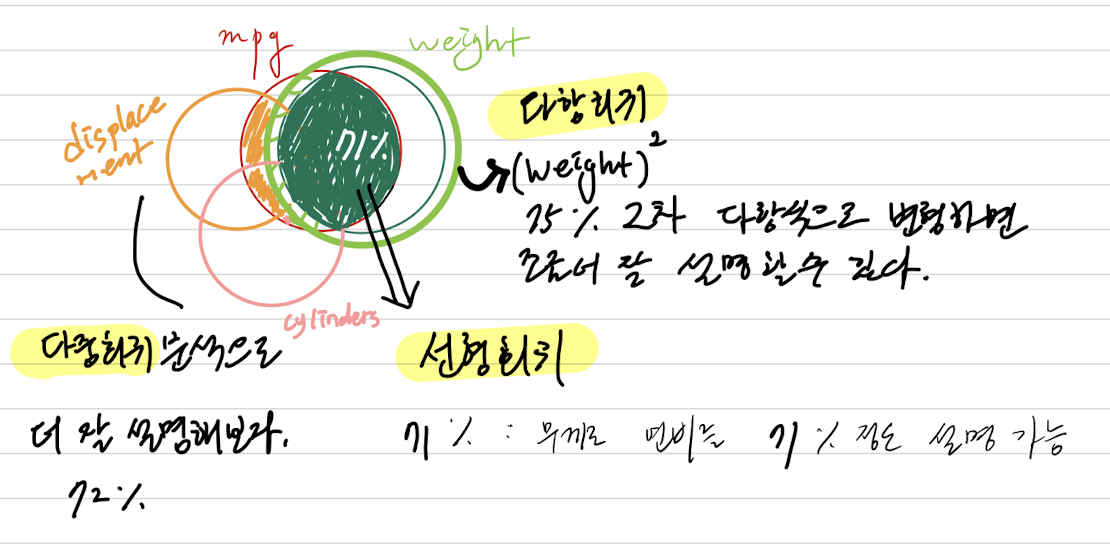 mpg
weight
displace
ment
71%
cylinders
다항회귀
(weight)²
75% 2차 다항식으로 변형하면
조금더 잘 설명할 수 있다.
다중회귀 분석으로
더 잘 설명해보자.
72%
선형회귀
71% : 무게로 연비를 71% 정도 설명 가능